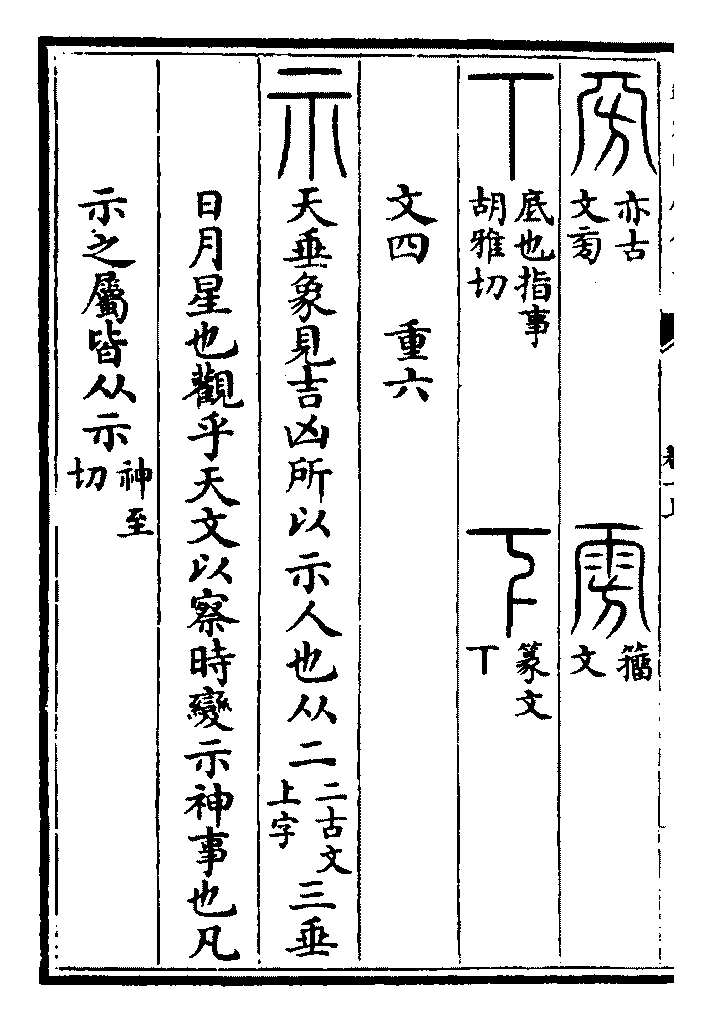 亦古文 雱 籒文
丅 底也指事胡雅切 下 篆文丅
文四 重六
示 天垂象見吉凶所以示人也从二 二古文上字 三垂
日月星也觀乎天文以察時變示神事也凡
示之屬皆从示 神至切